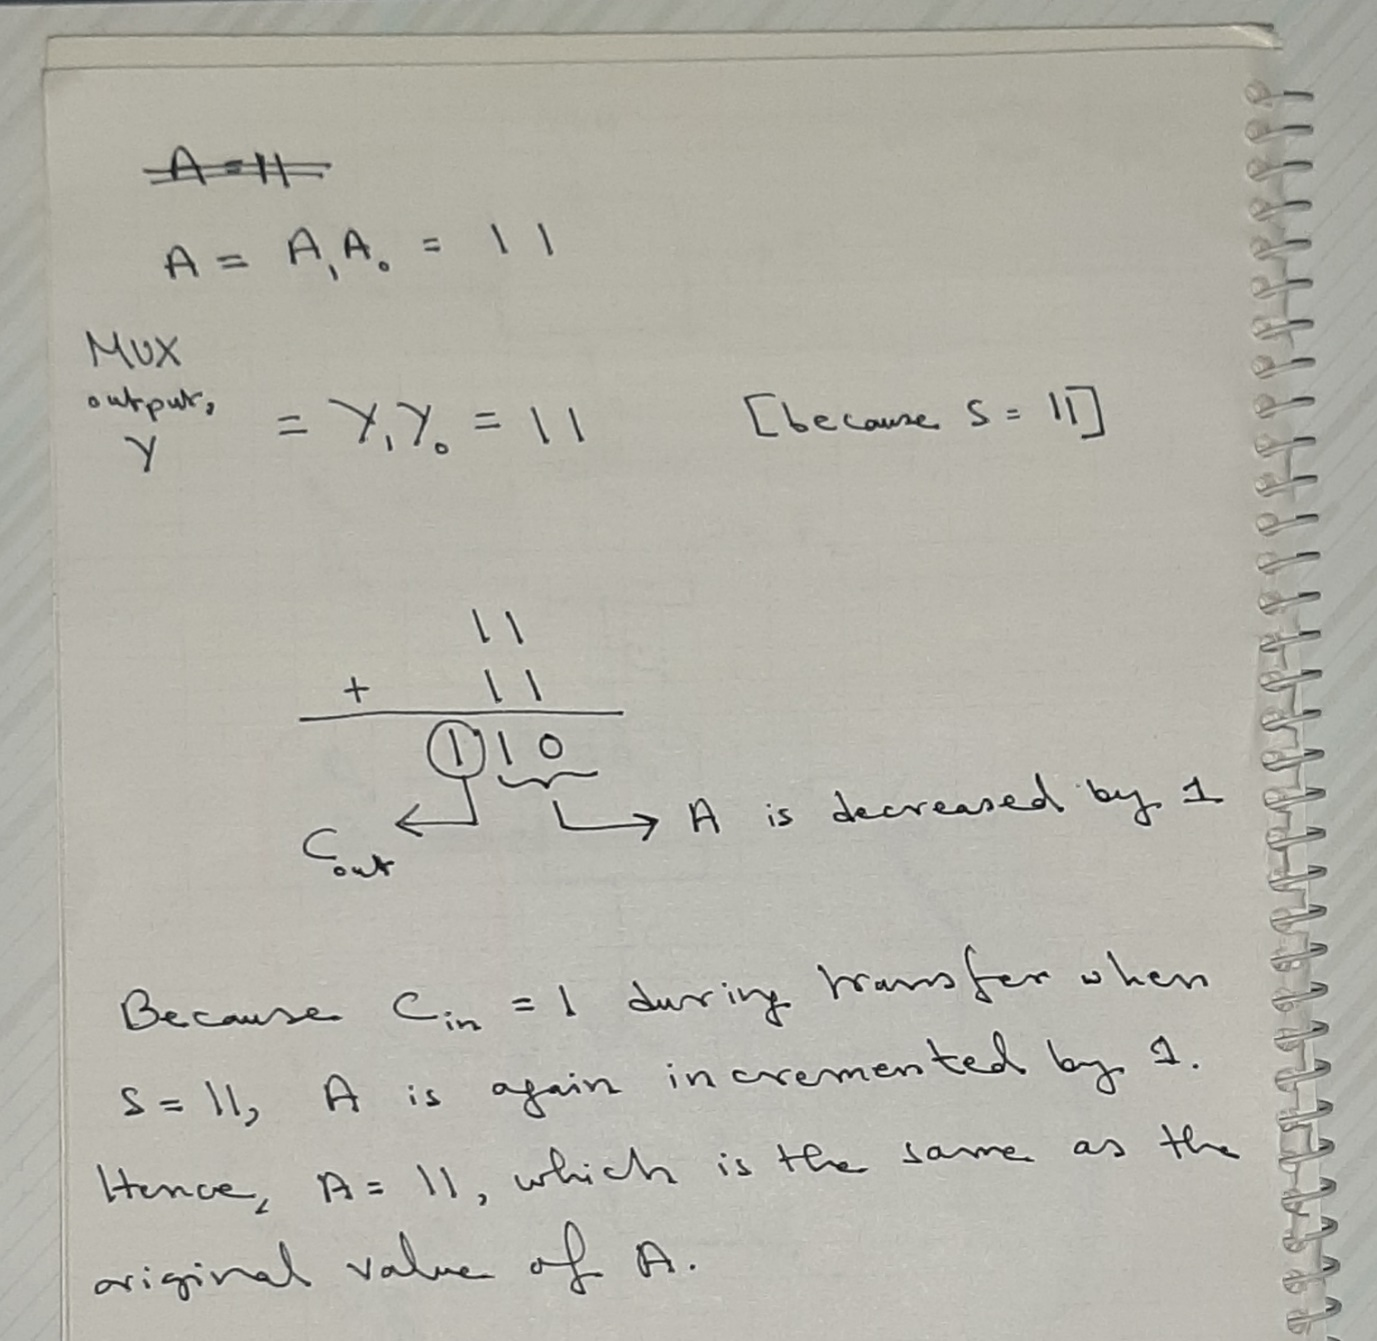 A = 11
A = A₁A₀ = 11
MUX
output,
Y = Y₁Y₀ = 11 [because S = 11]
11
+ 11
110
Cout A is decreased by 1
Because Cin = 1 during transfer when
S = 11, A is again incremented by 1.
Hence, A = 11, which is the same as the
original value of A.